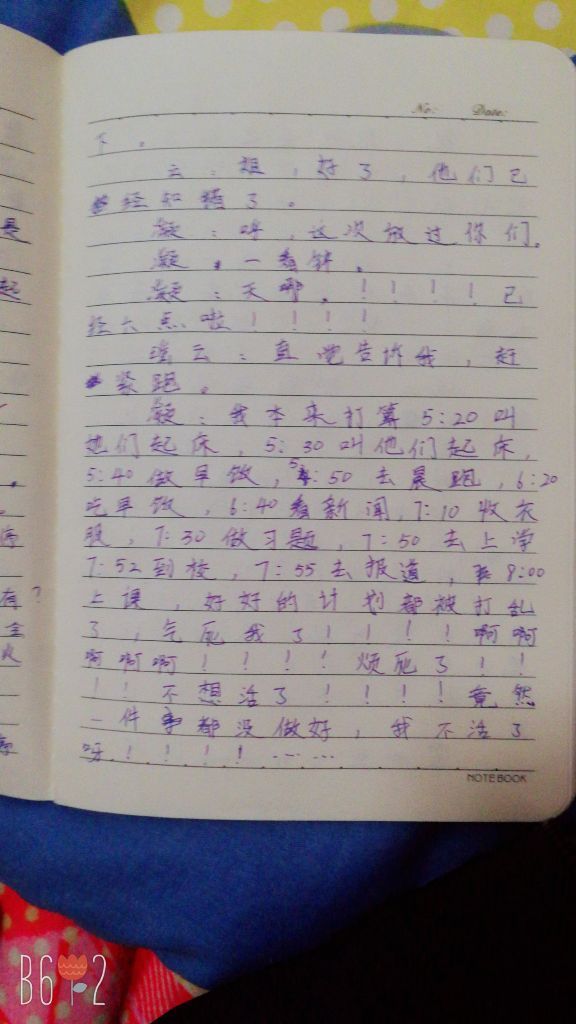 No: Date:
下。
云：姐，好了，他们已
经知错了。
凝：哼，这次放过你们。
凝。一看钟。
凝：天哪，！！！！已
经六点啦！！！！
云：直觉告诉我，赶
紧跑。
凝：我本来打算5:20叫
他们起床，5:30叫他们起床，
5:40做早饭，5:50去晨跑，6:20
吃早饭，6:40看新闻，7:10收衣
服，7:30做习题，7:50去上学
7:52到校，7:55去报道，8:00
上课，好好的计划都被打乱
了，气死我了！！！！啊啊
啊啊啊！！！！烦死了！！
！！不想活了！！！！竟然
一件事都没做好，我不活了
呀！！！！……
NOTEBOOK
是
起
有？
B612